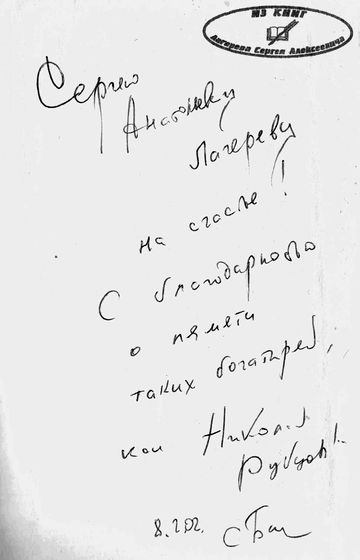 ИЗ КНИГ
Лагерева Сергея Алексеевича
Сергею
Анатольевичу
Лагереву
на счастье!
С благодарностью
о памяти
таких богатырей,
как Николай
Рубцов!